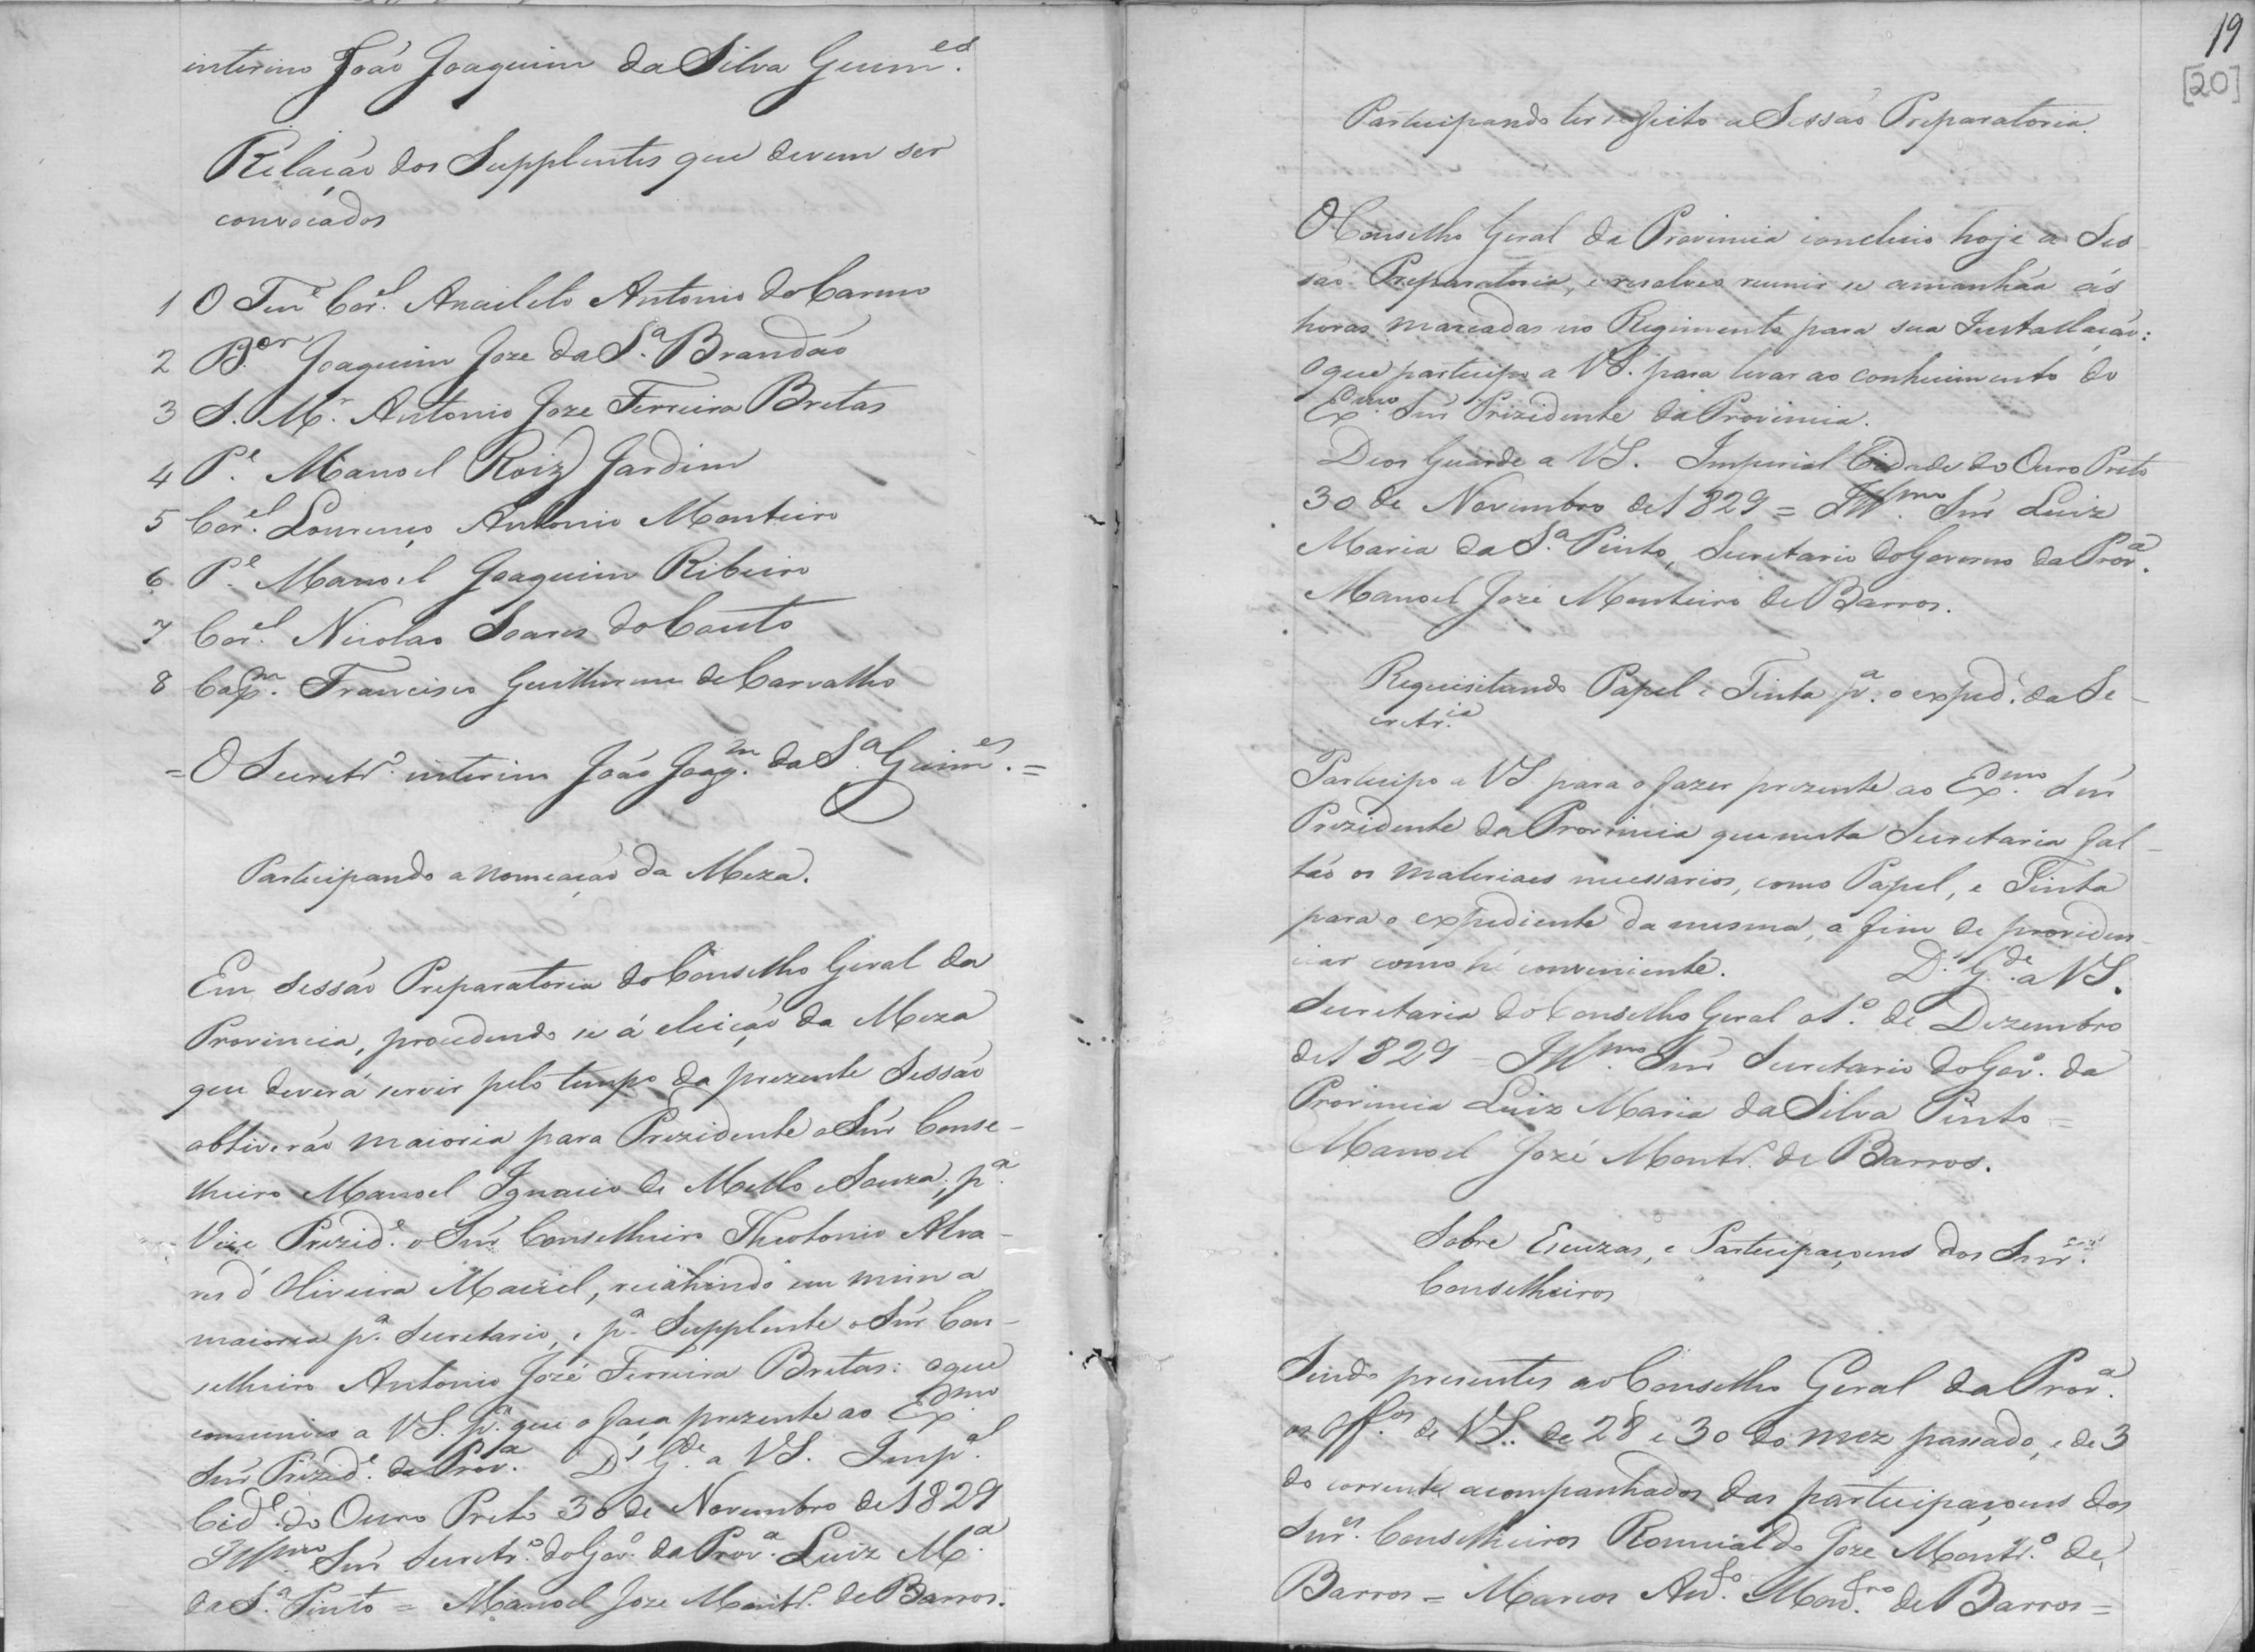 interino João Joaquim da Silva Guim.es
Relação dos Supplentes que devem ser
convocados
1 O Ten.e Cor.el Anacleto Antonio do Carmo
2 B.or Joaquim Joze da S.a Brandão
3 S. M.r Antonio Joze Ferreira Bretas
4 P.e Manoel Roiz Jardim
5 Cor.el Lourenço Antonio Monteiro
6 P.e Manoel Joaquim Ribeiro
7 Cor.el Nicolao Soares do Couto
8 Cap.m Francisco Guilherme de Carvalho
= O Secretr.o interino João Joaq.m da S.a Guim.es =
Participando a nomeação da Meza.
Em Sessão Preparatoria do Conselho Geral da
Provincia, procedendo se á eleição da Meza
que deverá servir pelo tempo da prezente Sessão
obtiverão maioria para Prezidente o Snr Conse-
lheiro Manoel Ignacio de Mello e Souza; p.a
Vice Prezid.e o Snr Conselheiro Theotonio Alva-
res d'Oliveira Maciel, recahindo em mim a
maioria p.a Secretario, e p.a Supplente o Snr Con-
selheiro Antonio José Ferreira Bretas: o que
comunico a VS. p.a que o faça prezente ao Ex.mo
Snr Prezid.e da Prov.a D.s G.de a VS. Imp.al
Cid.e do Ouro Preto 30 de Novembro de 1829
Ill.mo Snr Secretr.o do Gov.o da Prov.a Luiz M.a
da S.a Pinto = Manoel Joze Montr.o de Barros.
19
[20]
Participando ter se feito a Sessão Preparatoria.
O Conselho Geral da Provincia concluio hoje a Ses-
são Preparatoria, e resolveo reunir se amanhãa ás
horas marcadas no Regimento para sua Installação:
o que participo a VS. para levar ao conhecimento do
Ex.mo Snr Prezidente da Provincia.
Deos Guarde a VS. Imperial Cidade do Ouro Preto
30 de Novembro de 1829 = Ill.mo Snr Luiz
Maria da S.a Pinto, Secretario do Governo da Prov.a
Manoel José Monteiro de Barros.
Requisitando Papel e Tinta p.a o exped.e da Se-
cretr.ia
Participo a VS. para o fazer prezente ao Ex.mo Snr
Prezidente da Provincia que nesta Secretaria fal-
tão os materiaes necessarios, como Papel, e Tinta
para o expediente da mesma, a fim de providen-
ciar como hé conveniente. D.s G.de a VS.
Secretaria do Conselho Geral o 1.o de Dezembro
de 1829 = Ill.mo Snr Secretario do Gov.o da
Provincia Luiz Maria da Silva Pinto =
Manoel José Montr.o de Barros.
Sobre Escuzas, e Participaçoens dos Snr.es
Conselheiros
Sendo presentes ao Conselho Geral da Prov.a
os Off.os de VS. de 28 e 30 do mez passado, e de 3
do corrente acompanhados das participaçoens dos
Snr.es Conselheiros Romualdo Joze Montr.o de
Barros = Marcos Ant.o Mont.ro de Barros =